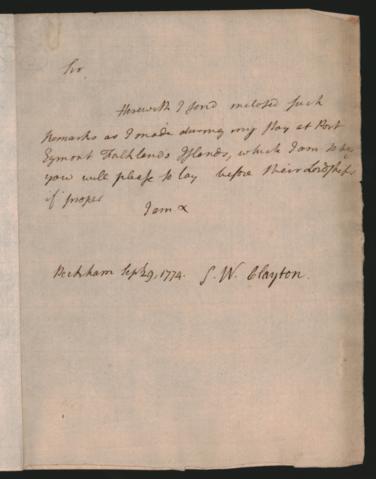 Sir
Herewith I send inclosed such
Remarks as I made during my Stay at Port
Egmont Falklands Islands, which I am to beg
you will please to lay before their Lordships
if proper
I am &
Peckham Sept. 9, 1774. S. W. Clayton.